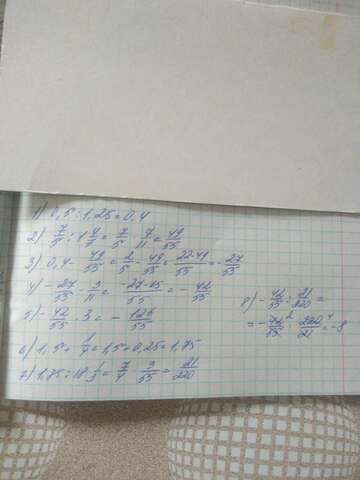 1) 0,5 : 1,25 = 0,4
2) 7/5 : 1 4/7 = 7/5 · 7/11 = 49/55
3) 0,4 - 49/55 = 2/5 - 49/55 = 22-49/55 = -27/55
4) -27/55 - 3/11 = -27-15/55 = -42/55
5) -42/55 · 3 = -126/55
6) 1,5 + 1/4 = 1,5 + 0,25 = 1,75
7) 1,75 : 18 1/3 = 7/4 · 3/55 = 21/220
8) -42/55 : 21/220 =
= -42/55 ² · 220/21 ⁴ = -8